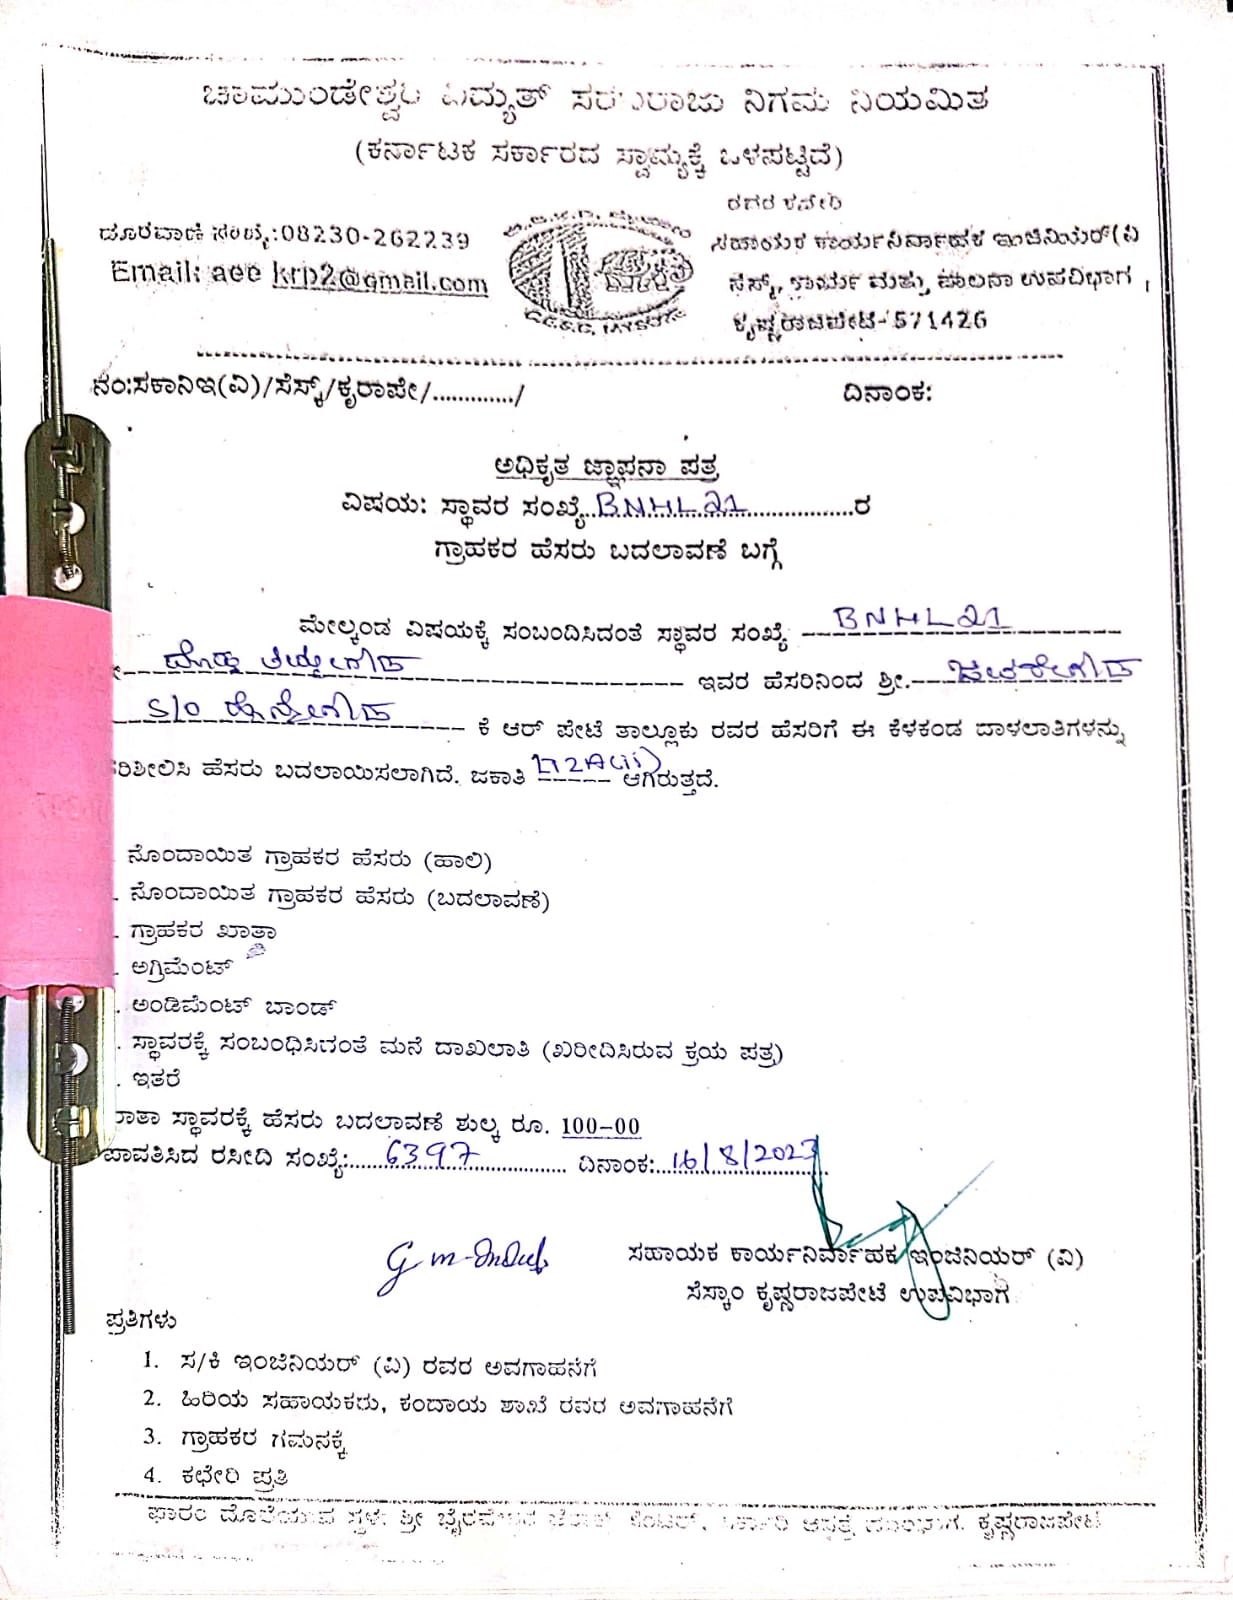 ಚಾಮುಂಡೇಶ್ವರಿ ವಿದ್ಯುತ್ ಸರಬರಾಜು ನಿಗಮ ನಿಯಮಿತ
(ಕರ್ನಾಟಕ ಸರ್ಕಾರದ ಸ್ವಾಮ್ಯಕ್ಕೆ ಒಳಪಟ್ಟಿದೆ)
ದೂರವಾಣಿ ಸಂಖ್ಯೆ:08230-262239
Email: aee krp2@gmail.com
C.E.S.C. MYSORE
ಸಹಾಯಕ ಕಾರ್ಯನಿರ್ವಾಹಕ ಇಂಜಿನಿಯರ್(ವಿ
ಸೆಸ್ಕ್, ಕಾರ್ಯ ಮತ್ತು ಪಾಲನಾ ಉಪವಿಭಾಗ,
ಕೃಷ್ಣರಾಜಪೇಟೆ-571426
ನಂ:ಸಕಾನಿಇ(ವಿ)/ಸೆಸ್ಕ್/ಕೃರಾಪೇ/............./ ದಿನಾಂಕ:
ಅಧಿಕೃತ ಜ್ಞಾಪನಾ ಪತ್ರ
ವಿಷಯ: ಸ್ಥಾವರ ಸಂಖ್ಯೆ BNHL21 ರ
ಗ್ರಾಹಕರ ಹೆಸರು ಬದಲಾವಣೆ ಬಗ್ಗೆ
ಮೇಲ್ಕಂಡ ವಿಷಯಕ್ಕೆ ಸಂಬಂದಿಸಿದಂತೆ ಸ್ಥಾವರ ಸಂಖ್ಯೆ BNHL21
ಇವರ ಹೆಸರಿನಿಂದ ಶ್ರೀ.
S/O ಕೆ ಆರ್ ಪೇಟೆ ತಾಲ್ಲೂಕು ರವರ ಹೆಸರಿಗೆ ಈ ಕೆಳಕಂಡ ದಾಳಲಾತಿಗಳನ್ನು
ರಿಶೀಲಿಸಿ ಹೆಸರು ಬದಲಾಯಿಸಲಾಗಿದೆ. ಜಕಾತಿ ಆಗಿರುತ್ತದೆ.
. ನೊಂದಾಯಿತ ಗ್ರಾಹಕರ ಹೆಸರು (ಹಾಲಿ)
. ನೊಂದಾಯಿತ ಗ್ರಾಹಕರ ಹೆಸರು (ಬದಲಾವಣೆ)
. ಗ್ರಾಹಕರ ಖಾತ್ರಾ
. ಅಗ್ರಿಮೆಂಟ್
. ಅಂಡಿಮೆಂಟ್ ಬಾಂಡ್
. ಸ್ಥಾವರಕ್ಕೆ ಸಂಬಂಧಿಸಿದಂತೆ ಮನೆ ದಾಖಲಾತಿ (ಖರೀದಿಸಿರುವ ಕ್ರಯ ಪತ್ರ)
. ಇತರೆ
ಸ್ಥಾವರಕ್ಕೆ ಹೆಸರು ಬದಲಾವಣೆ ಶುಲ್ಕ ರೂ. 100-00
ಪಾವತಿಸಿದ ರಸೀದಿ ಸಂಖ್ಯೆ: 6397 ದಿನಾಂಕ: 16/8/2023
ಸಹಾಯಕ ಕಾರ್ಯನಿರ್ವಾಹಕ ಇಂಜಿನಿಯರ್ (ವಿ)
ಸೆಸ್ಕಾಂ ಕೃಷ್ಣರಾಜಪೇಟೆ ಉಪವಿಭಾಗ
ಪ್ರತಿಗಳು
1. ಸ/ಕಿ ಇಂಜಿನಿಯರ್ (ವಿ) ರವರ ಅವಗಾಹನೆಗೆ
2. ಹಿರಿಯ ಸಹಾಯಕರು, ಕಂದಾಯ ಶಾಖೆ ರವರ ಅವಗಾಹನೆಗೆ
3. ಗ್ರಾಹಕರ ಗಮನಕ್ಕೆ
4. ಕಛೇರಿ ಪ್ರತಿ
ಫಾರಂ ದೊರೆಯುವ ಸ್ಥಳ: ಶ್ರೀ ಕೃಷ್ಣರಾಜಪೇಟೆ